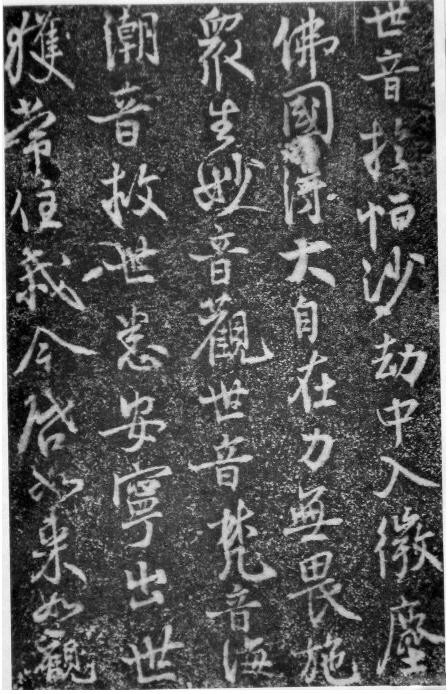 世音於恒沙劫中入微塵
佛國得大自在力無畏施
眾生妙音觀世音梵音海
潮音救世悉安寧出世
獲常住我今启如来如觀